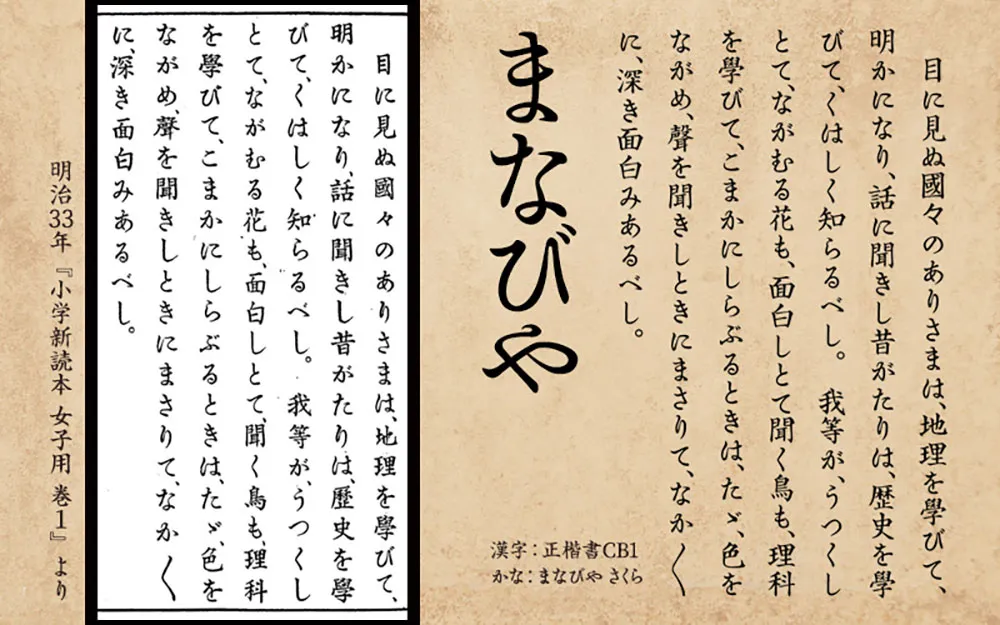 目に見ぬ國々のありさまは、地理を學びて、
明かになり、話に聞きし昔がたりは、歴史を學
びて、くはしく知らるべし。　我等が、うつくし
とて、ながむる花も、面白しとて聞く鳥も、理科
を學びて、こまかにしらぶるときは、たゞ、色を
ながめ、聲を聞きしときにまさりて、なか〱
に、深き面白みあるべし。
まなびや
漢字：正楷書CB1
かな：まなびや さくら
目に見ぬ國々のありさまは、地理を學びて、
明かになり、話に聞きし昔がたりは、歷史を學
びて、くはしく知らるべし。　我等が、うつくし
とて、ながむる花も、面白しとて、聞く鳥も、理科
を學びて、こまかにしらぶるときは、たゞ、色を
ながめ、聲を聞きしときにまさりて、なか〱
に、深き面白みあるべし。
明治33年『小学新読本 女子用 巻1』より